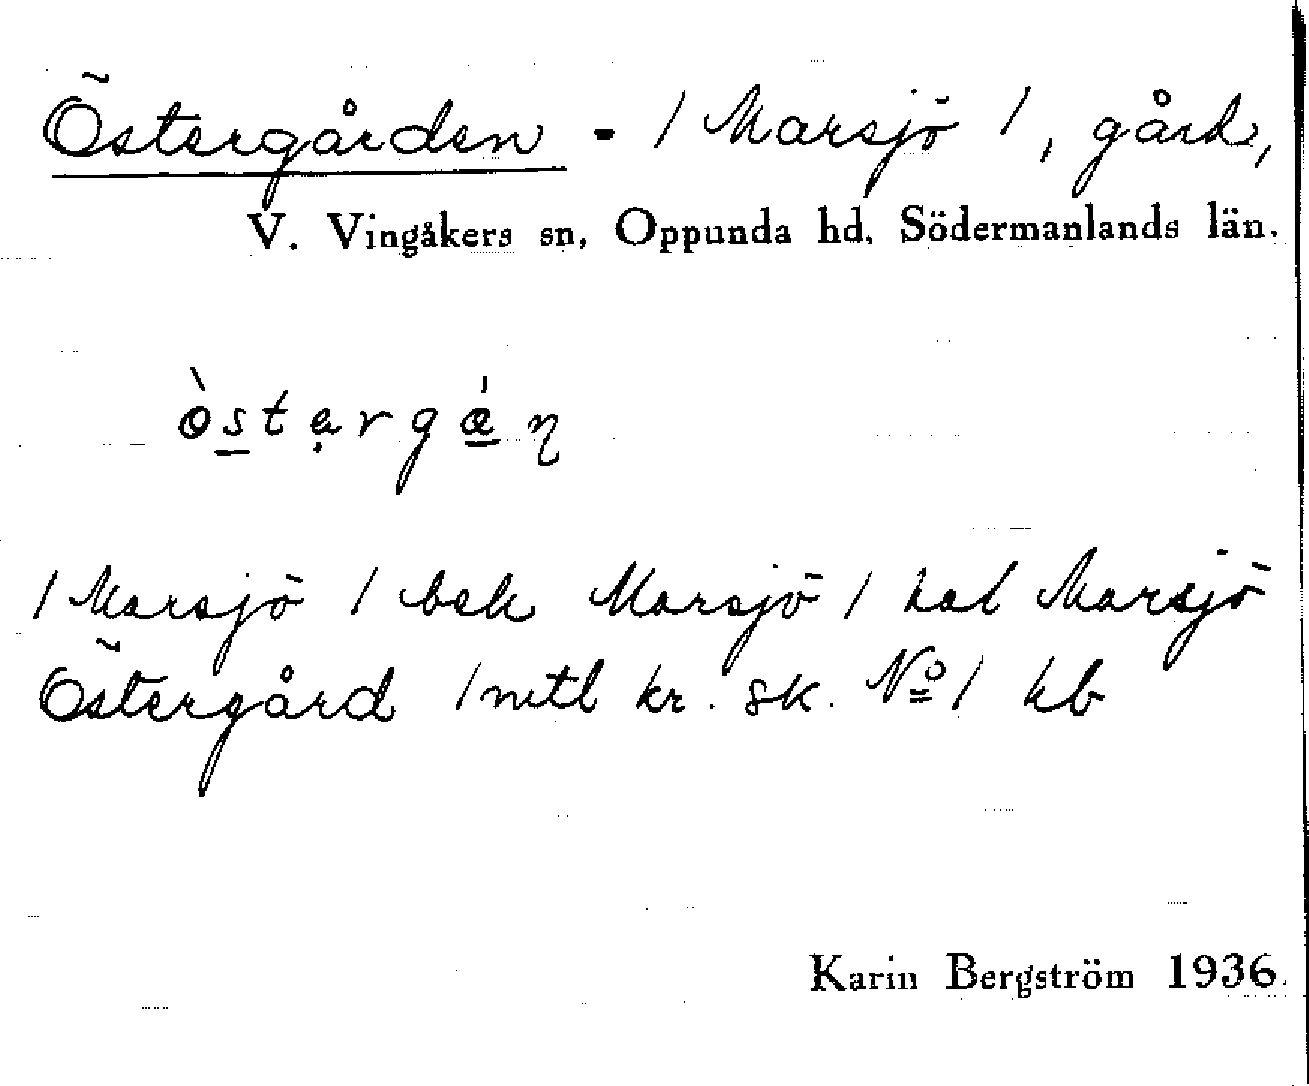 Östergården - / Marsjö /, gård,
V. Vingåkers sn, Oppunda hd, Södermanlands län.
/ Marsjö / bek Marsjö / hal Marsjö
Östergård / mtl kr. sk. No / kb
Karin Bergström 1936.